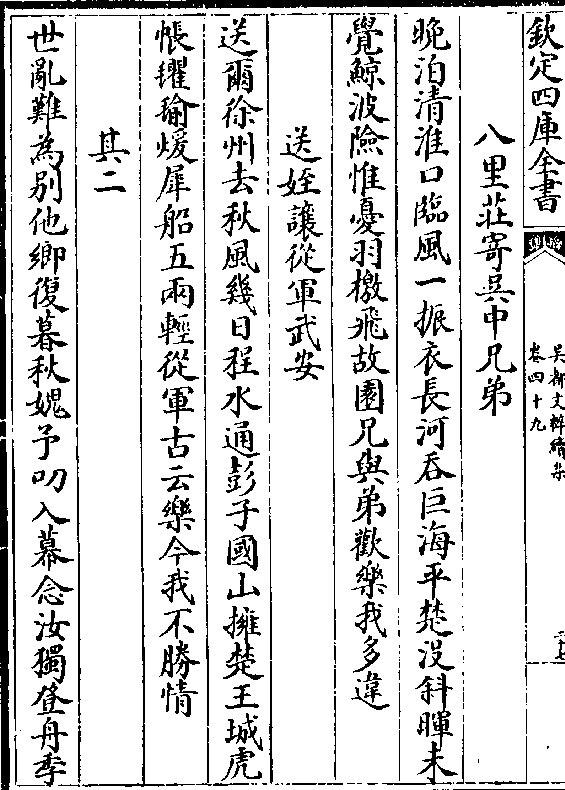 欽定四庫全書
吳都文粹續集
卷四十九
八里莊寄吳中兄弟
晚泊清淮口臨風一振衣長河吞巨海平楚沒斜暉未
覺鯨波險惟憂羽檄飛故園兄與弟歡樂我多違
送姪讓從軍武安
送爾徐州去秋風幾日程水通彭子國山擁楚王城虎
帳貛瑜煖犀船五兩輕從軍古云樂今我不勝情
其二
世亂難為別他鄉復暮秋媿予叨入幕念汝獨登舟季